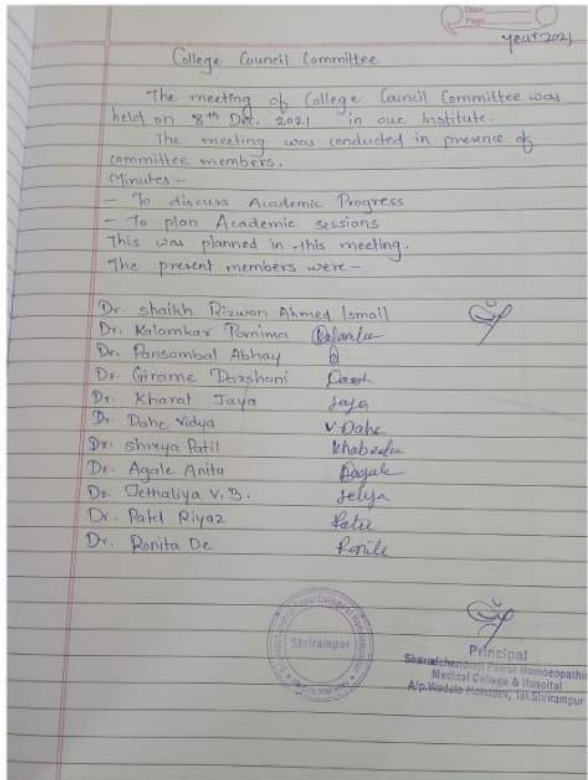 Date
Page
year 2021
College Council Committee
The meeting of College Council Committee was
held on 8th Dec. 2021 in our Institute.
The meeting was conducted in presence of
committee members.
Minutes -
- To discuss Academic Progress
- To plan Academic sessions
This was planned in this meeting.
The present members were -
Dr. Shaikh Rizwan Ahmed Ismail
Dr. Kalamkar Pornima
Dr. Pansambal Abhay
Dr. Girame Darshani
Dr. Kharat Jaya Jaya
Dr. Dahe Vidya V Dahe
Dr. Shreya Patil
Dr. Agale Anita Aagale
Dr. Jethaliya V. B.
Dr. Patel Riyaz
Dr. Ronita De
Shrirampur
Principal
Sharadchandraji Pawar Homoeopathic
Medical College & Hospital
A/p. Wadala Mahadev, Tal. Shrirampur